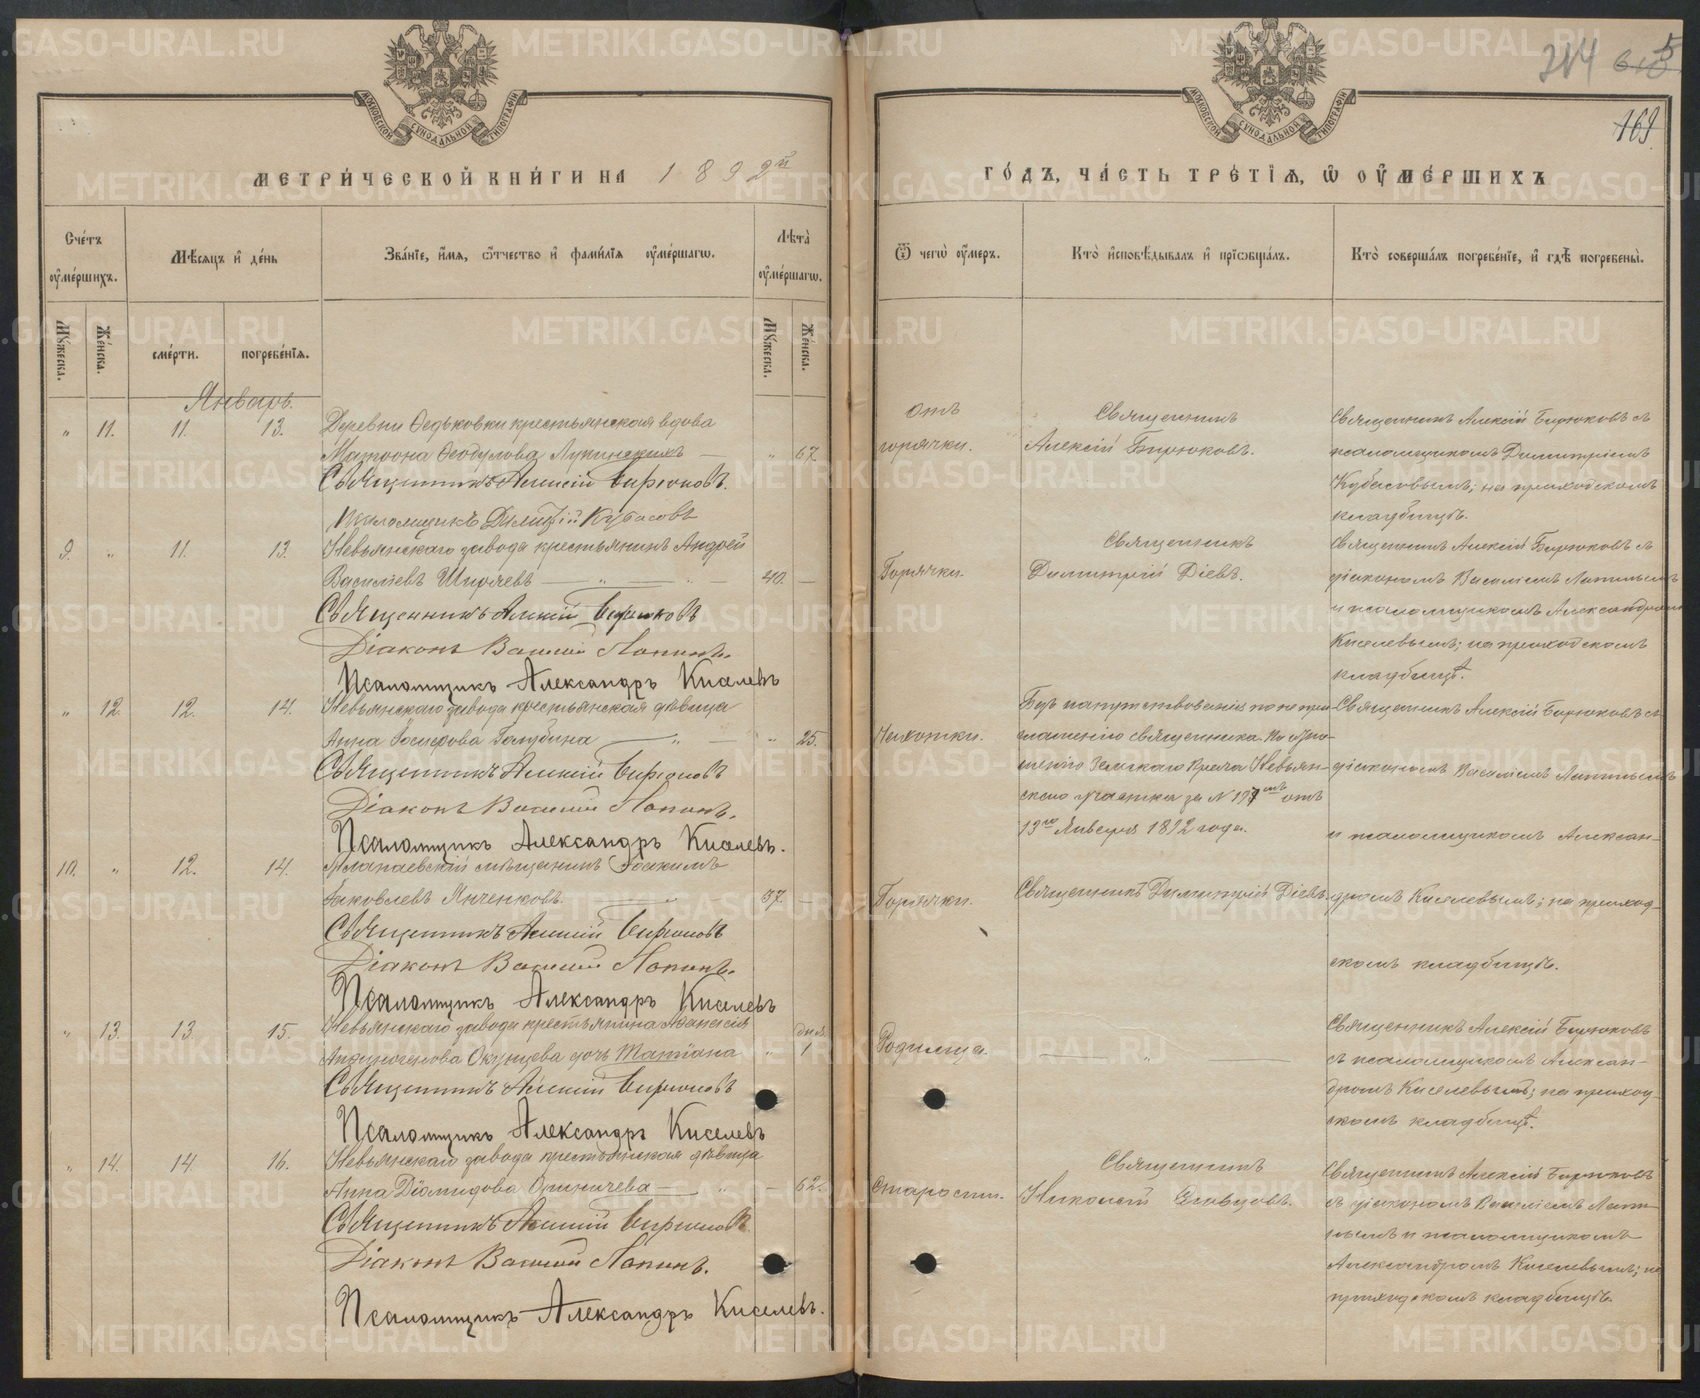 МОСКОВСКОЙ СѴНОДАЛЬНОЙ ТИПОГРАФІИ
МОСКОВСКОЙ СѴНОДАЛЬНОЙ ТИПОГРАФІИ
244
5
169
МЕТРИ́ЧЕСКОЙ КНИ́ГИ НА 1892й
ГО́ДЪ, ЧА́СТЬ ТРЕ́ТІѦ, Ѽ ОУ҆МЕ́РШИХЪ
Сче́тъ оу҆ме́ршихъ.
Мѣ́сѧцъ и҆ де́нь
Зва́нїе, и҆́мѧ, ѻ҆́тчество и҆ фами́лїѧ оу҆ме́ршагѡ.
Лѣ̑та оу҆ме́ршагѡ.
Ѿ чегѡ̀ оу҆́меръ.
Кто̀ и҆сповѣ́дывалъ и҆ прїѡбща́лъ.
Кто̀ соверша́лъ погребе́нїе, и҆ гдѣ̀ погребены̀.
Мꙋ́жеска.
Же́нска.
сме́рти.
погребе́нїѧ.
Мꙋ́жеска.
Же́нска.
Январь.
" 11. 11. 13. Деревни Федьковки крестьянская вдова
Матрона Феодулова Лупинскихъ — " 67.
Священникъ Алексій Бирюковъ.
Псаломщикъ Димитрій Кубасовъ
отъ
горячки.
Священникъ
Алексій Бирюковъ.
Священникъ Алексій Бирюковъ съ
псаломщикомъ Димитріемъ
Кубасовымъ; на приходскомъ
кладбищѣ.
9. " 11. 13. Невьянскаго завода крестьянинъ Андрей
Василіевъ Ширяевъ — " — " — 40. —
Священникъ Алексій Бирюковъ
Діаконъ Василій Лапинъ.
Псаломщикъ Александръ Киселевъ
Горячки.
Священникъ
Димитрій Діевъ.
Священникъ Алексій Бирюковъ съ
діакономъ Василіемъ Лапинымъ
и псаломщикомъ Александромъ
Киселевымъ; на приходскомъ
кладбищѣ.
" 12. 12. 14. Невьянскаго завода крестьянская дѣвица
Анна Голубина — " — " 25.
Священникъ Алексій Бирюковъ
Діаконъ Василій Лапинъ.
Псаломщикъ Александръ Киселевъ.
Чахотки.
Безъ напутствованія по не при-
глашенію священника. По
Земскаго Врача Невьян-
скаго участка за № 197мъ отъ
13го Января 1892 года.
Священникъ Алексій Бирюковъ съ
діакономъ Василіемъ Лапинымъ
и псаломщикомъ Алексан-
10. " 12. 14. Алапаевскій мѣщанинъ Іоакимъ
Іаковлевъ Янченковъ. — " — 37. —
Священникъ Алексій Бирюковъ
Діаконъ Василій Лапинъ.
Псаломщикъ Александръ Киселевъ
Горячки.
Священникъ Димитрій Діевъ.
дромъ Киселевымъ; на приход-
скомъ кладбищѣ.
" 13. 13. 15. Невьянскаго завода крестьянина Афанасія
Окунцева дочь Татіана " дня 1
Священникъ Алексій Бирюковъ
Псаломщикъ Александръ Киселевъ
Родимца.
— " —
Священникъ Алексій Бирюковъ
съ псаломщикомъ Алексан-
дромъ Киселевымъ; на приход-
скомъ кладбищѣ.
" 14. 14. 16. Невьянскаго завода крестьянская дѣвица
Анна Діомидова — " — 62.
Священникъ Алексій Бирюковъ
Діаконъ Василій Лапинъ.
Псаломщикъ Александръ Киселевъ.
Старости.
Священникъ
Николай
Священникъ Алексій Бирюковъ
съ діакономъ Василіемъ Лапи-
нымъ и псаломщикомъ
Александромъ Киселевымъ; на
приходскомъ кладбищѣ.
METRIKI.GASO-URAL.RU